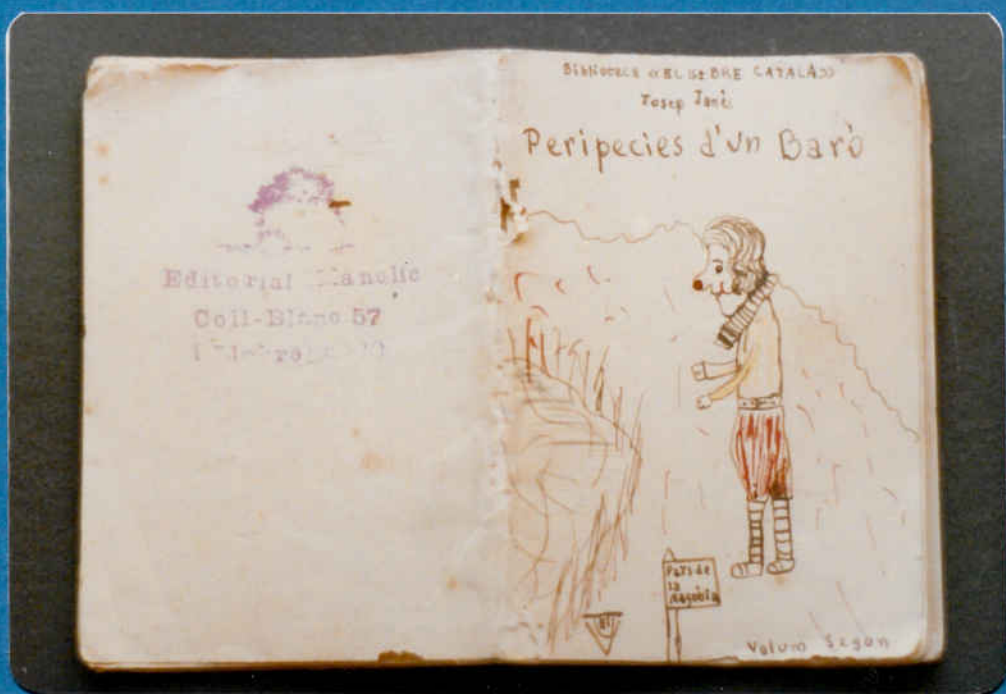 Editorial
Coll-Blanc 57
Biblioteca «EL LLIBRE CATALÀ»
Josep Janés
Peripecies d'un Baró
País de
la
Volum Segon